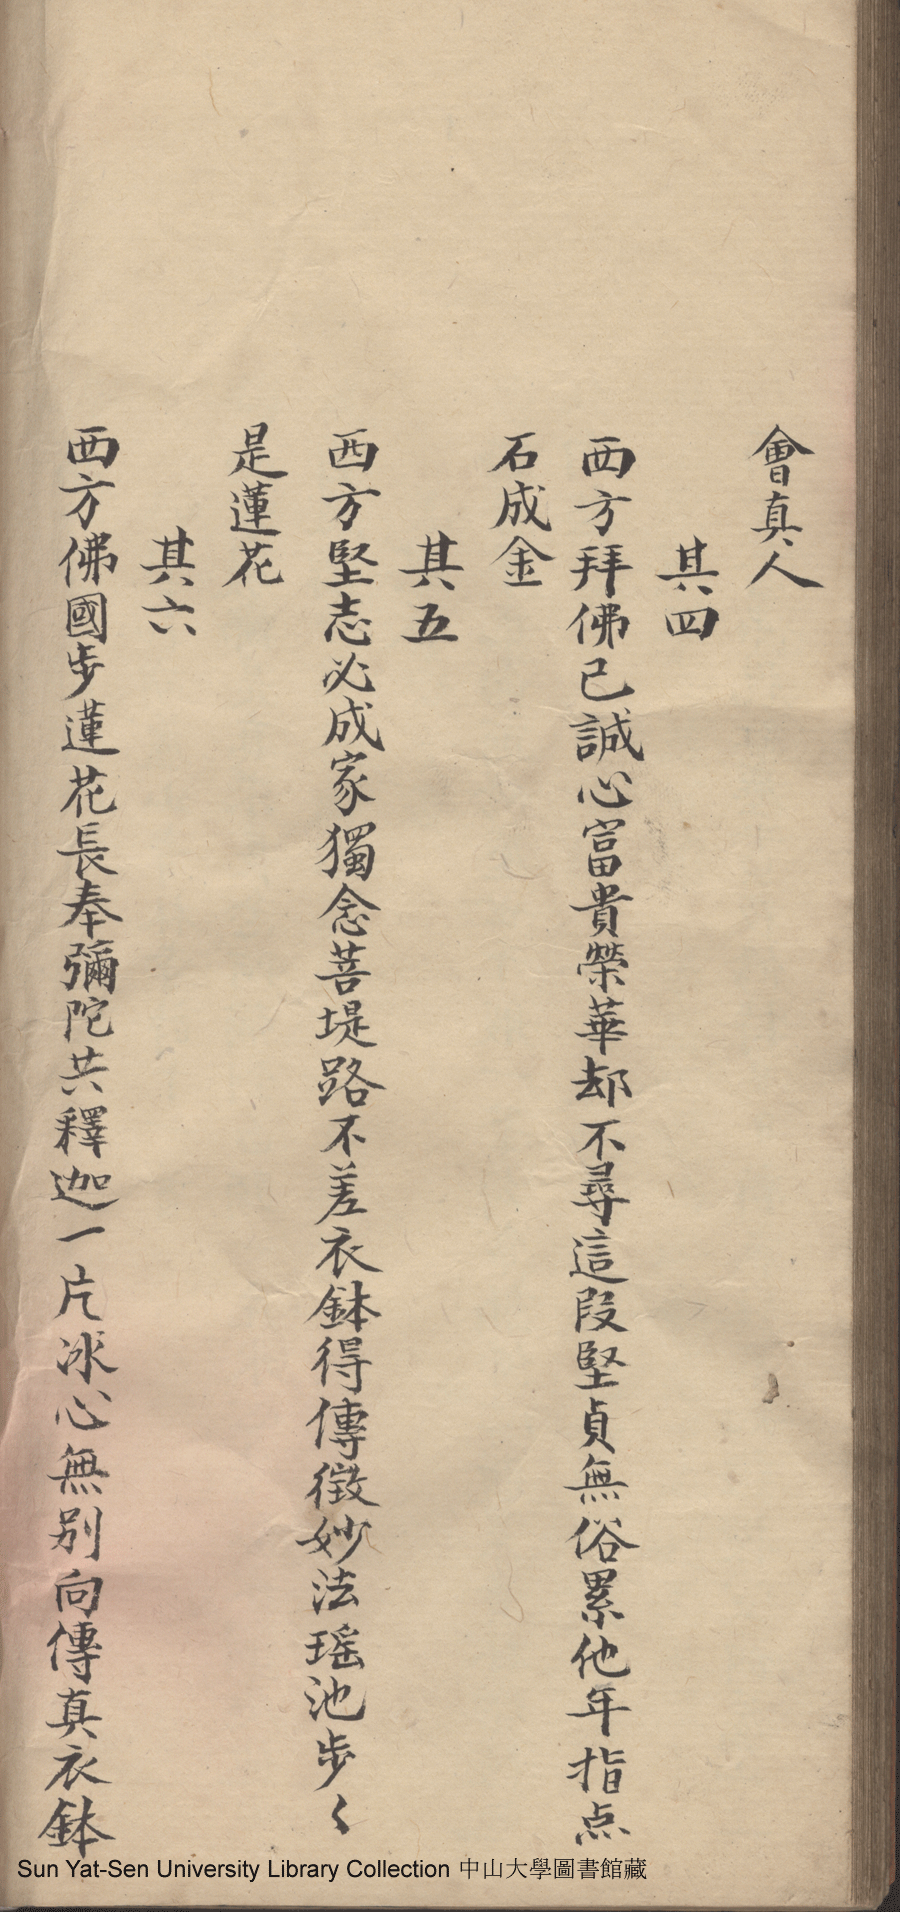 會真人
其四
西方拜佛已誠心富貴榮華却不尋這段堅貞無俗累他年指点
石成金
其五
西方堅志必成家獨念菩堤路不差衣鉢得傳微妙法瑶池步〻
是蓮花
其六
西方佛國步蓮花長奉彌陀共釋迦一片冰心無別向傳真衣鉢
Sun Yat-Sen University Library Collection 中山大學圖書館藏